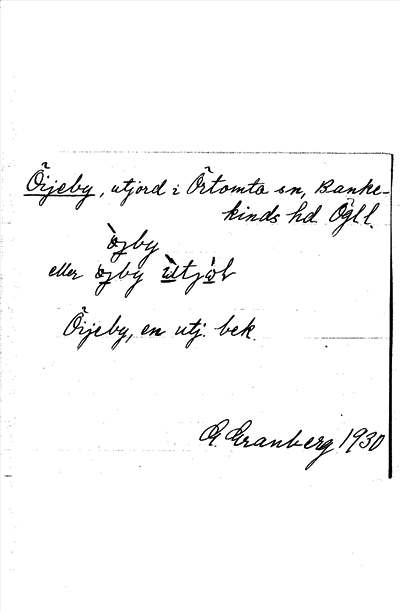 Öijeby, utjord i Örtomta sn, Banke-
kinds hd Ögl l.
eller
Öijeby, en utj. bek.
G. Granberg 1930